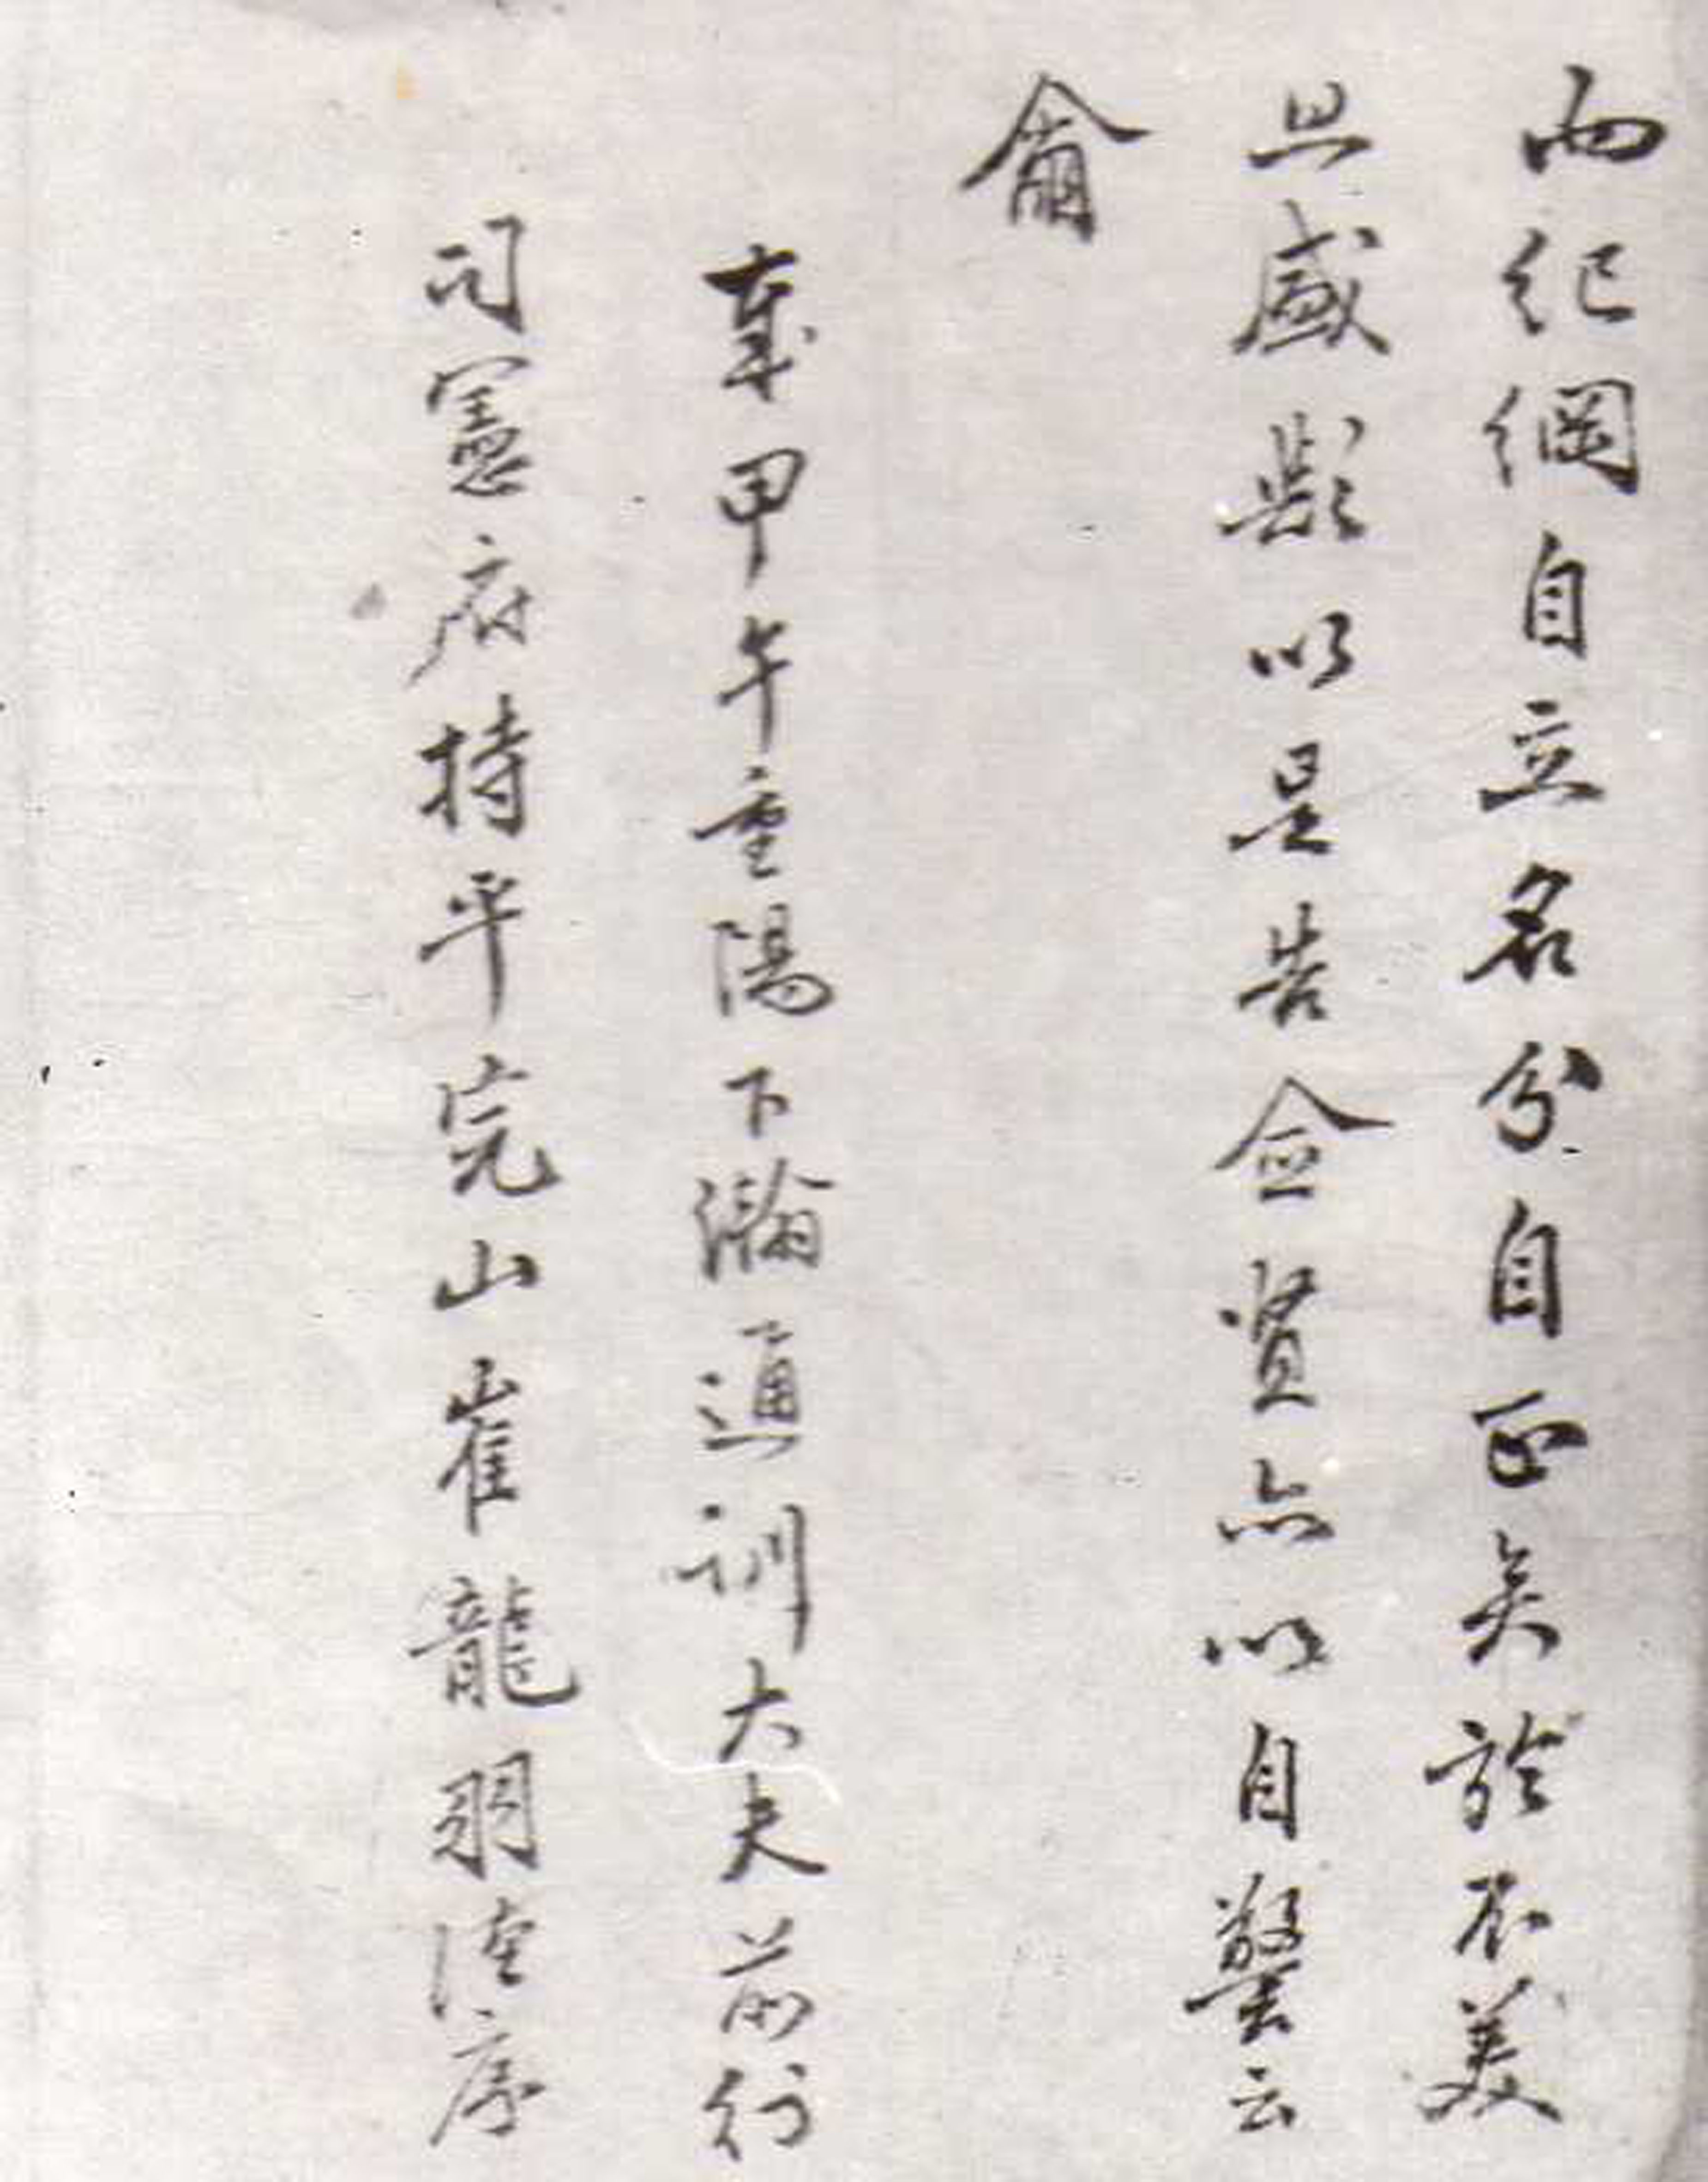 而紀綱自立名分自正矣於不美
且盛歟以是告僉賢亦以自警云
爾
歲甲午重陽下瀚通訓大夫前行
司憲府持平完山崔龍羽謹序